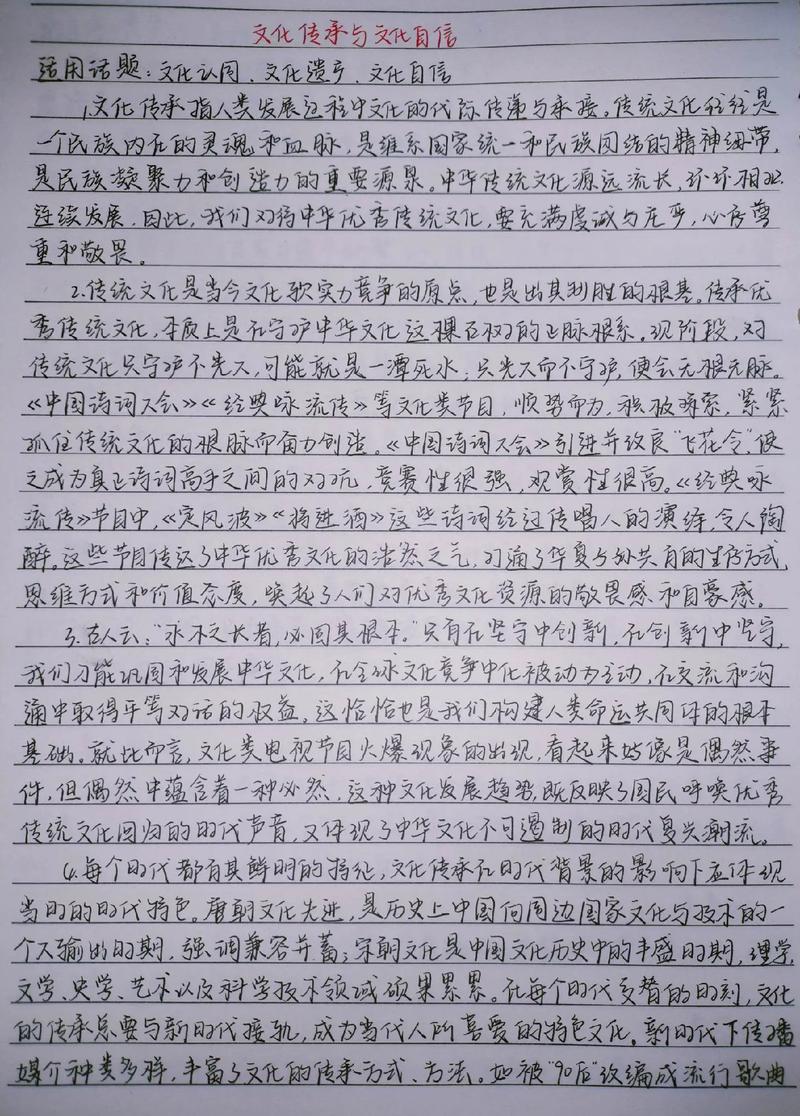 文化传承与文化自信
适用话题：文化认同、文化遗产、文化自信
1.文化传承指人类发展过程中文化的代际传递与承接。传统文化往往是
一个民族内在的灵魂和血脉，是维系国家统一和民族团结的精神纽带，
是民族凝聚力和创造力的重要源泉。中华传统文化源远流长，环环相扣，
连续发展，因此，我们对待中华优秀传统文化，要充满虔诚与庄严，心存尊
重和敬畏。
2.传统文化是当今文化软实力竞争的原点，也是出其制胜的根基。传承优
秀传统文化，本质上是在守护中华文化这棵大树的正脉根系。现阶段，对
传统文化只守护不光大，可能就是一潭死水；只光大而不守护，便会无根无脉。
《中国诗词大会》《经典咏流传》等文化类节目，顺势而为，积极探索，紧紧
抓住传统文化的根脉而奋力创造。《中国诗词大会》引进并改良“飞花令”，使
之成为真正诗词高手之间的对抗，竞赛性很强，观赏性很高。《经典咏
流传》节目中，《定风波》《将进酒》这些诗词经过传唱人的演绎，令人陶
醉。这些节目传达了中华优秀文化的浩然之气，打通了华夏子孙共有的生存方式、
思维方式和价值态度，唤起了人们对优秀文化资源的敬畏感和自豪感。
3.古人云：“求木之长者，必固其根本。”只有在坚守中创新，在创新中坚守，
我们才能巩固和发展中华文化，在全球文化竞争中化被动为主动，在交流和沟
通中取得平等对话的权益。这恰恰也是我们构建人类命运共同体的根本
基础。就此而言，文化类电视节目火爆现象的出现，看起来好像是偶然事
件，但偶然中蕴含着一种必然，这种文化发展趋势，既反映了国民呼唤优秀
传统文化回归的时代声音，又体现了中华文化不可遏制的时代复兴潮流。
4.每个时代都有其鲜明的特征，文化传承在时代背景的影响下应体现
当时的时代特色。唐朝文化先进，是历史上中国向周边国家文化与技术的一
个大输出时期，强调兼容并蓄；宋朝文化是中国文化历史中的丰盛时期，理学、
文学、史学、艺术以及科学技术领域硕果累累。在每个时代交替的时刻，文化
的传承总要与新时代接轨，成为当代人所喜爱的特色文化。新时代下传播
媒介种类多样，丰富了文化的传承方式、方法。如被“90后”改编成流行歌曲